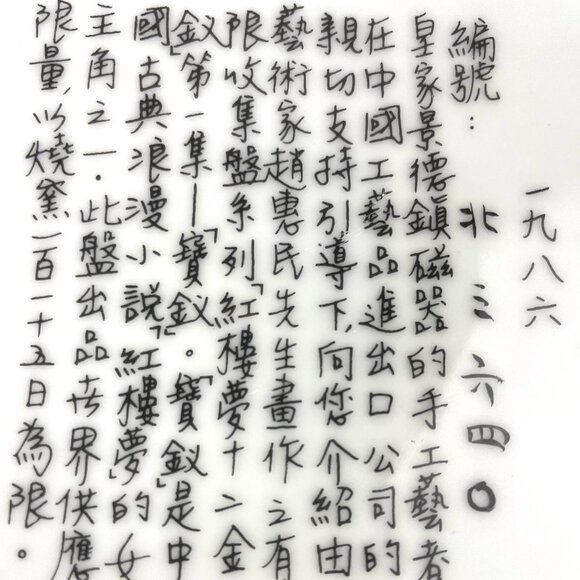 一九八六
編號：北三六四〇
皇家景德鎮磁器的手工藝者
在中國工藝品進出口公司的
親切支持引導下,向您介紹由
藝術家趙惠民先生畫作之有
限收集盤系列「紅樓夢十二金
釵」第一集—「寶釵」。「寶釵」是中
國古典浪漫小說「紅樓夢」的女
主角之一．此盤出品世界供應
限量,以燒窯一百一十五日為限。